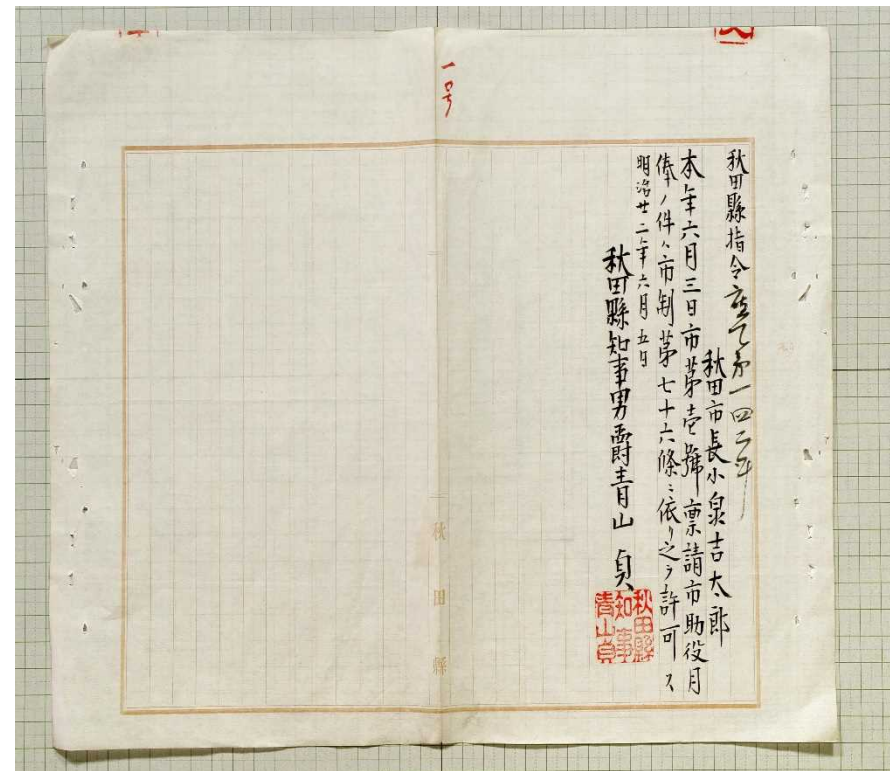 秋田縣指令庶乙第一四二号
秋田市長小泉吉太郎
本年六月三日市第壱號稟請市助役月
俸ノ件ハ市制第七十六條ニ依リ之ヲ許可ス
明治廿二年六月五日
秋田縣知事男爵青山貞
秋田縣
知事
青山貞
一号
秋田縣